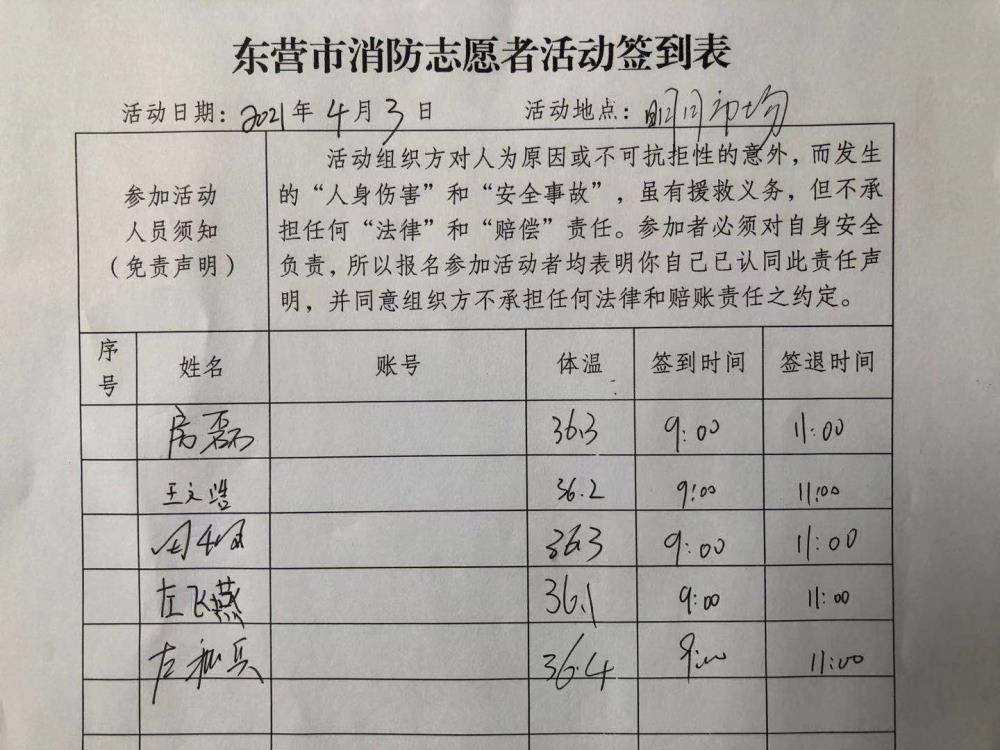 东营市消防志愿者活动签到表
活动日期：2021年4月3日 活动地点：明月市场
参加活动
人员须知
（免责声明）
活动组织方对人为原因或不可抗拒性的意外，而发生
的“人身伤害”和“安全事故”，虽有援救义务，但不承
担任何“法律”和“赔偿”责任。参加者必须对自身安全
负责，所以报名参加活动者均表明你自己已认同此责任声
明，并同意组织方不承担任何法律和赔账责任之约定。
序号 姓名 账号 体温 签到时间 签退时间
房磊 36.3 9:00 11:00
王文浩 36.2 9:00 11:00
36.3 9:00 11:00
左飞燕 36.1 9:00 11:00
左 兵 36.4 9:00 11:00